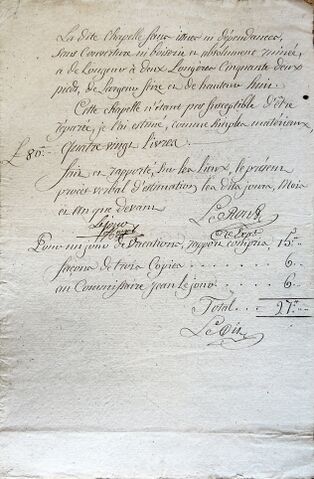 La dite chapelle sans issues ni dépendances,
Sans Couverture ni boiserie et absolument ruinée,
a de Longueur à deux Longères Cinquante deux
pieds, de largeur seize et de hauteur huit
Cette chapelle n'étant pas susceptible d'être
réparée, je l'ai estimé, comme simples matériaux,
£ 80" Quatre vingt Livres.
fait et rapporté, sur les lieux, le présent
procès verbal d'estimation les dits jours, Mois
et an que devant
Pour un jour de vacations, rapport compris 15"
façons de trois Copies . . . . . . 6 . .
au Commissaire Jean Lejono . . . . 6 . .
Total . . . 27"